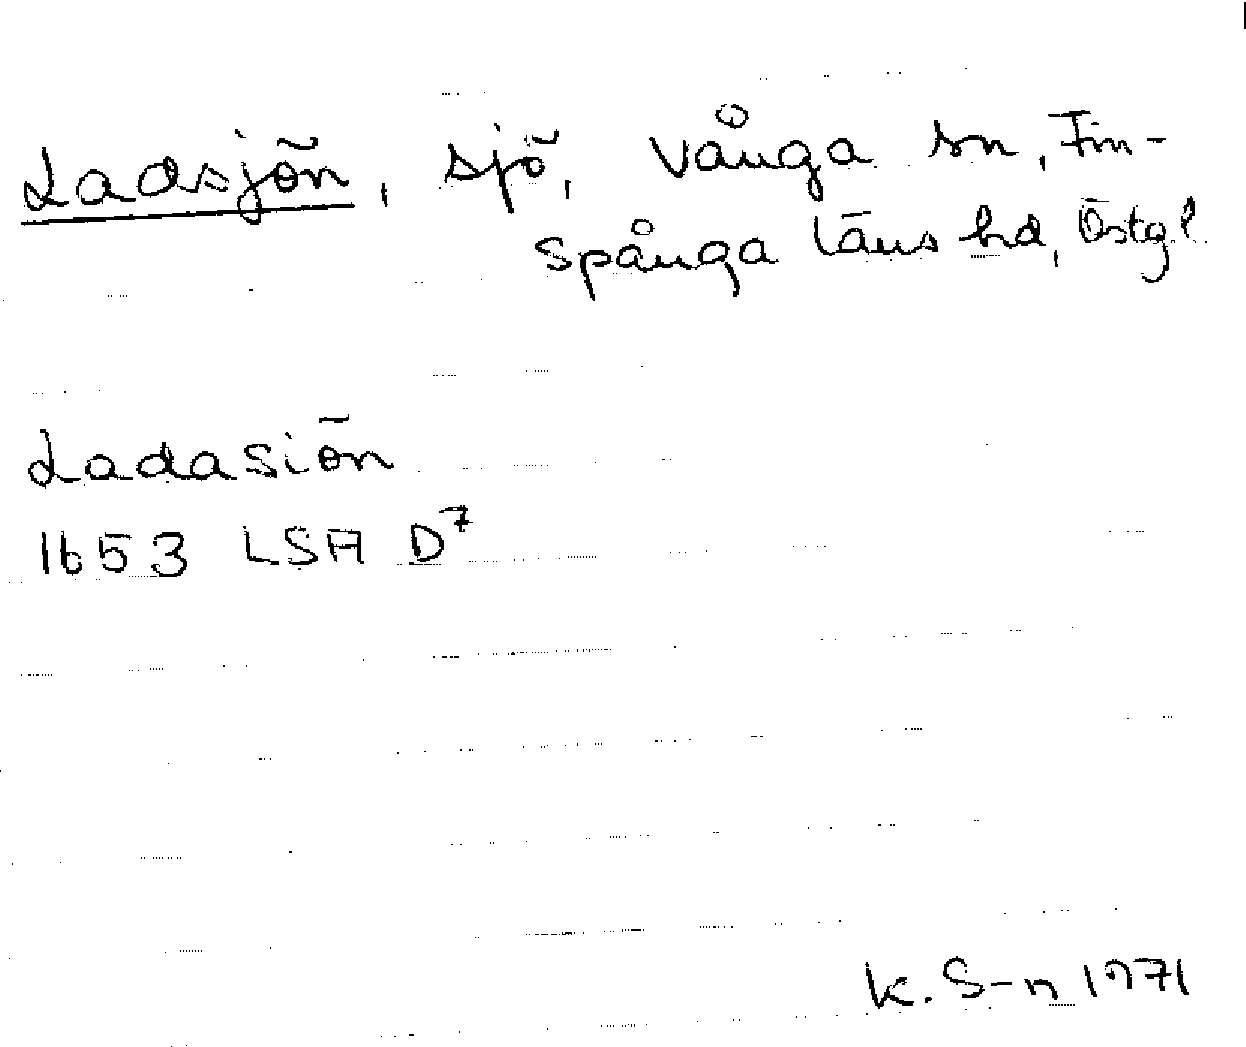 Ladsjön, sjö, Vånga sn, Fin-
spånga läns hd, Östg.l.
Ladasiön
1653 LSA D7
K. S-n 1971